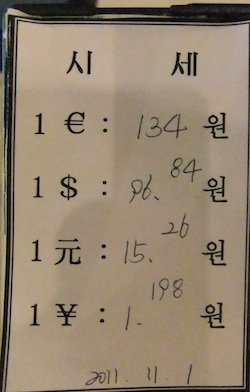 시 세
1 € : 134 원
1 $ : 96.84 원
1 元 : 15.26 원
1 ¥ : 1.198 원
2011. 11. 1